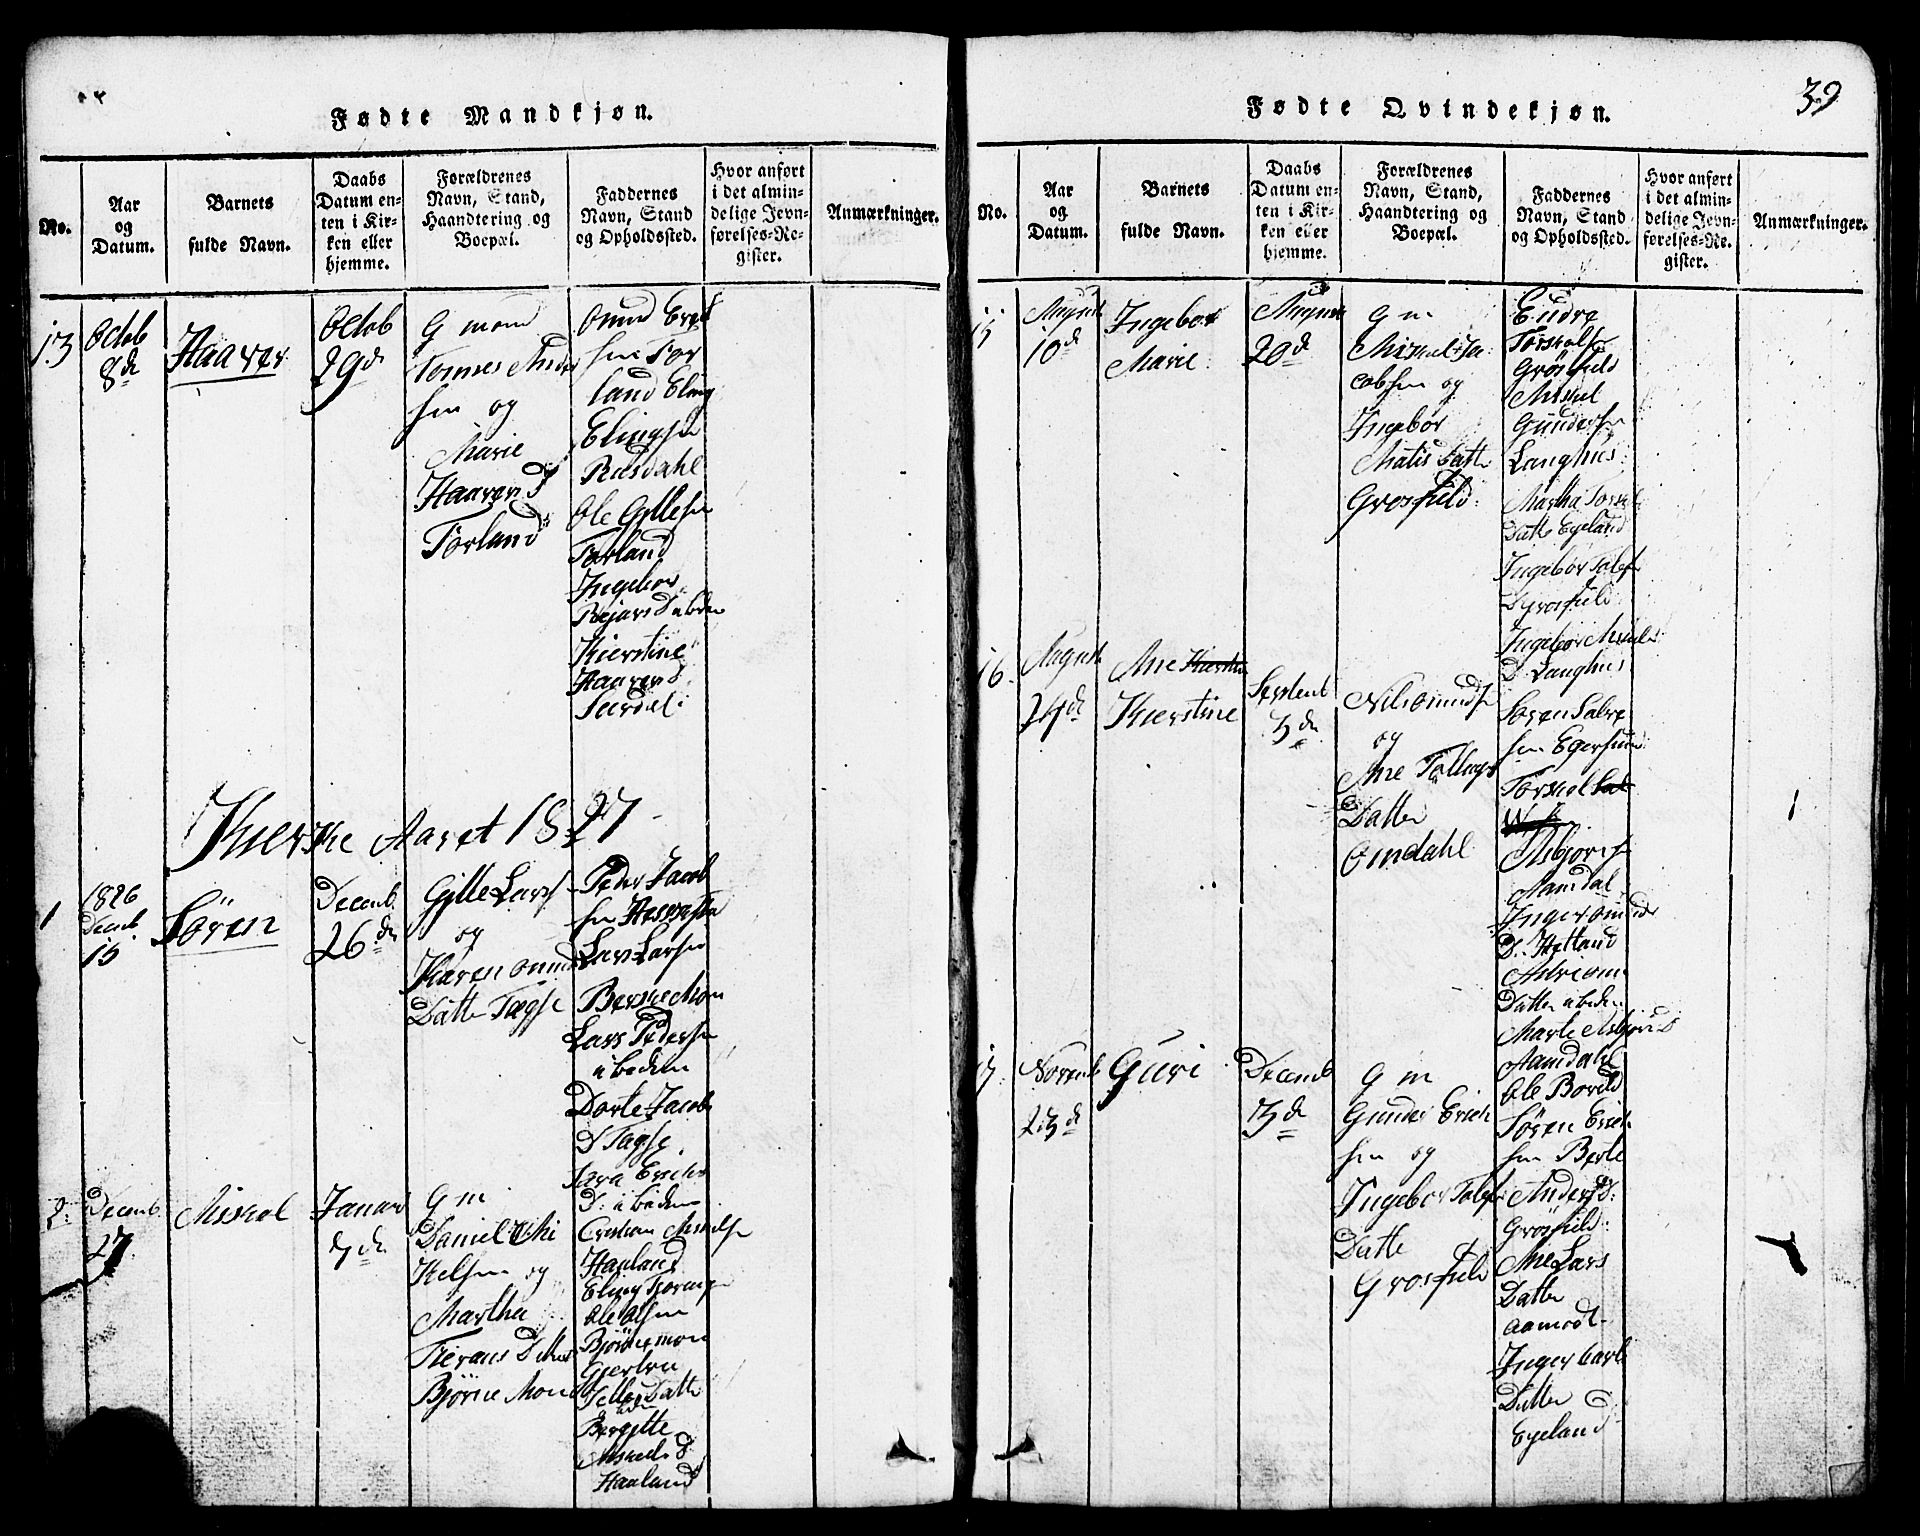 Fødte Mandkjøn.
No.
Aar
og
Datum.
Barnets
fulde Navn.
Daabs
Datum en-
ten i Kir-
ken eller
hjemme.
Forældrenes
Navn, Stand,
Haandtering og
Boepæl.
Faddernes
Navn, Stand
og Opholdssted.
Hvor anført
i det almin-
delige Jevn-
førelses-Re-
gister.
Anmærkninger.
13
Octob
8de
Haaver
Octob
29d
G mand
Tonnes Ander
sen og
Marie
Haavers D
Torland
Omund Erek
sen Tor
land Eling
Elingsen
Rusdahl
Ole Gyllesen
Torland
Ingebor
Kierstine
Haavers
Kierske Aaret 1827
1
1826
Decemb
15
Sören
Decemb
26de
Gjlle Lars
og
Karen Omund
Datter Tægse
Peder Jacob
sen
Lars Larsen
Lars Pedersen
ibidem
Dorte Jacobs
D Tægse
Sara Erichs
D: ibidem
2
Decemb
27
Aiskel
Januar
7de
G m
Daniel Mi
kelsen og
Martha
Datter
Bjørne Moe
Cristian Aiskelse
Haaland
Ole Olsen
Datter
Bergitte
Haaland
Fødte Qvindekjøn.
39
No.
Aar
og
Datum.
Barnets
fulde Navn.
Daabs
Datum en-
ten i Kir-
ken eller
hjemme.
Forældrenes
Navn, Stand,
Haandtering og
Boepæl.
Faddernes
Navn, Stand
og Opholdssted.
Hvor anført
i det almin-
delige Jevn-
førelses-Re-
gister.
Anmærkninger.
15
August
10de
Ingebor
Marie
August
20de
G m
Aiskel Ja
cobsen og
Ingebor
Matis Datter
Grosfield
Eudre
Torkels
Grösfield
Aiskel
Gundersen
Langhus
Martha Torkel
Datter Eyeland
Ingebor Tolefs
D Grosfield
Ingebor Aiskels
D Langhus
16
August
24de
Ane
Kierstine
Septemb
3de
Nils Omundse
og
Ane Tollags
Datter
Omdahl
Soren Salve
sen Egersund
Torkel
Asbjorns
Aamdal
Inger Omunds
D. Hetland
Datter ibidem
Marte Asbjorns D
Aamdahl
17
Novemb
23de
Guri
Decemb
3de
G m
Gunder Erich
sen og
Ingebor Tolefs
Datte
Grosfield
Ole Boreld
Sören Erich
sen Berte
Anders D:
Grösfield
Ane Lars
Datter
Aamodt
Inger Carls
Datter
Eyeland